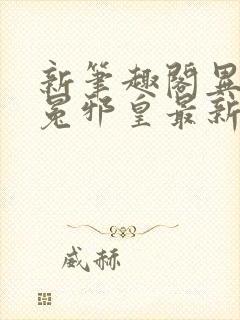 新笔趣阁异
冕邪皇最新
威赫